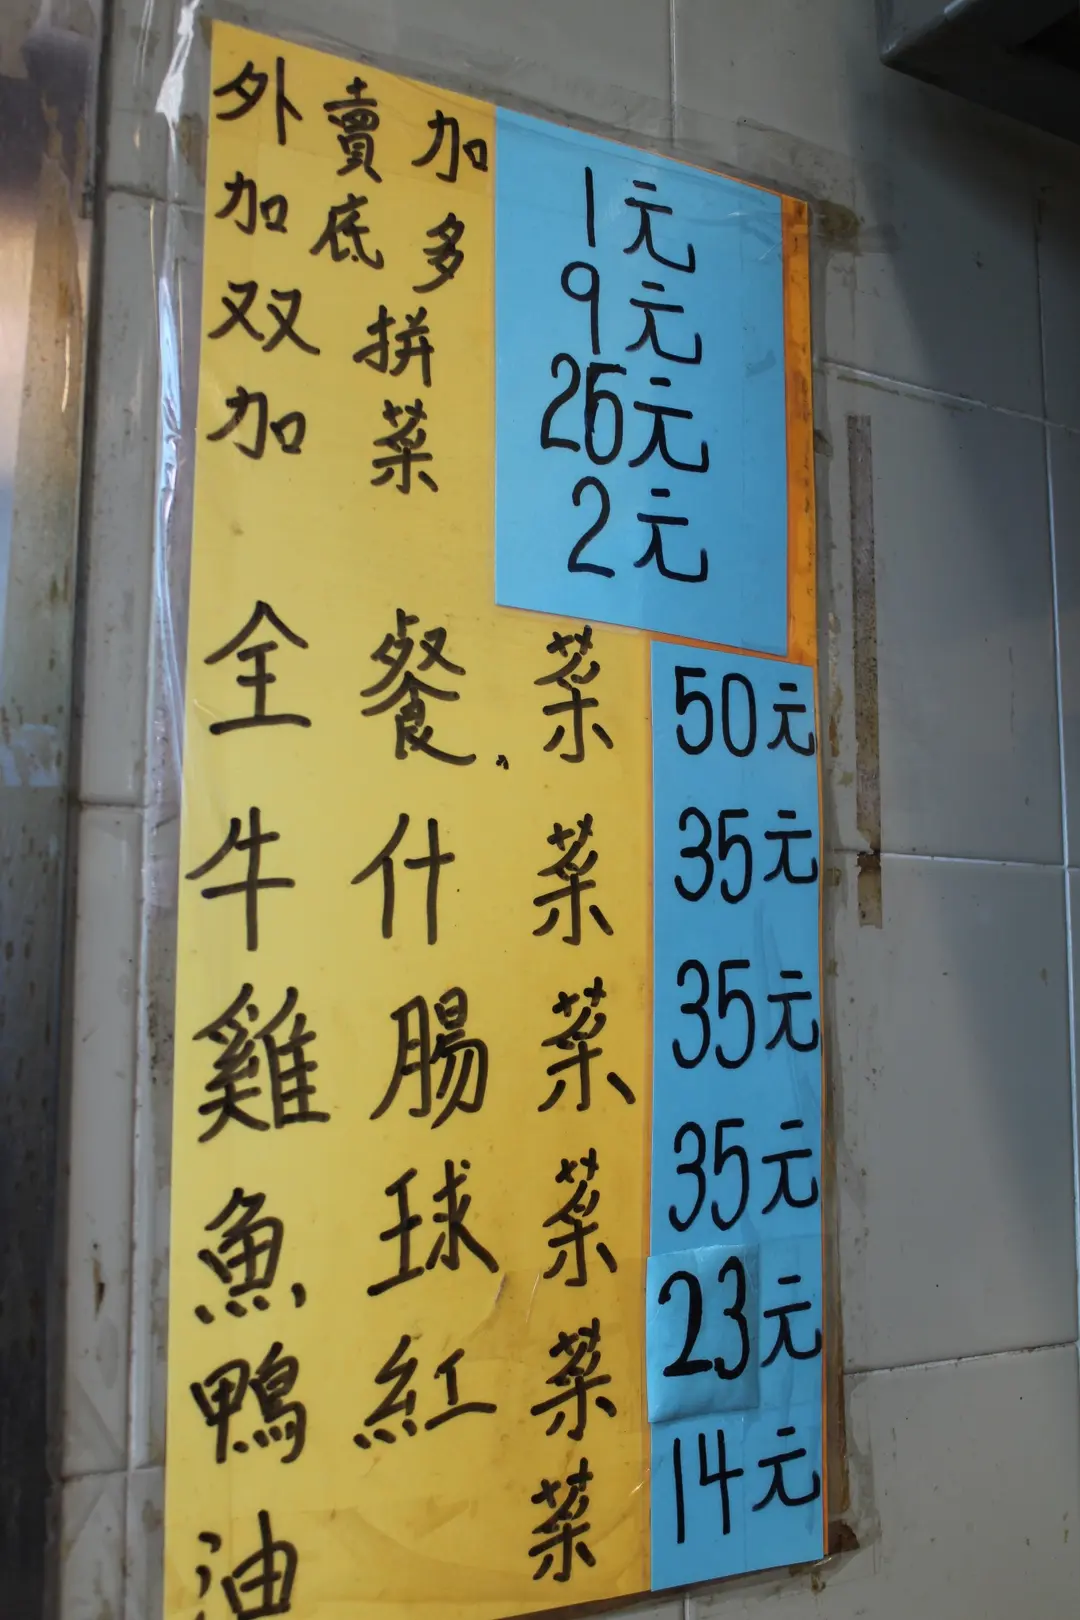 外賣加 1元
加底多 9元
双拼 26元
加菜 2元
全餐、菜 50元
牛什菜 35元
雞腸菜 35元
魚球菜 35元
鴨紅菜 23元
油菜 14元